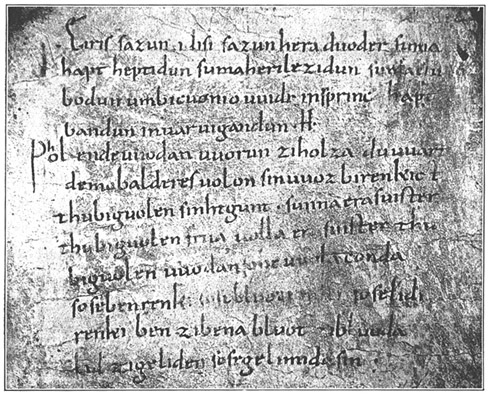 Eiris sazun idisi sazun hera duoder suma
hapt heptidun sumaherilezidun sumaclu
bodun umbicuonio uuidi insprinc hapt
bandun inuar uigandun. H.
Phol endeuuodan uuorun ziholza du uuart
demobalderes uolon sinuuoz birenkict
thubiguolen sinhtgunt . sunnaerasuister
thubiguolen friia uolla era suister thu
biguolen uuodan
sosebenrenki soselidi
renki ben zibena bluot zibluoda
lid zigeliden sosegelimidasin.